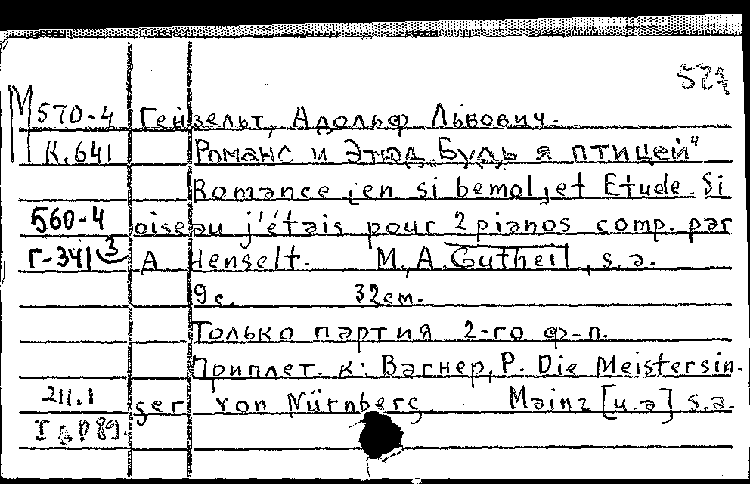 52
М 570-4 Гензельт, Адольф Львович.
К.641 Романс и Этюд „Будь я птицей"
Romance [en si bemol] et Etude Si
560-4 oiseau j'étais pour 2 pianos comp. par
Г-341 3 A Henselt. М., A. Gutheil, s.a.
9с. 32см.
Только партия 2-го ф-п.
Приплет. к: Вагнер, Р. Die Meistersin-
211.1 ger von Nürnberg. Mainz [u.a] s.a.
89.